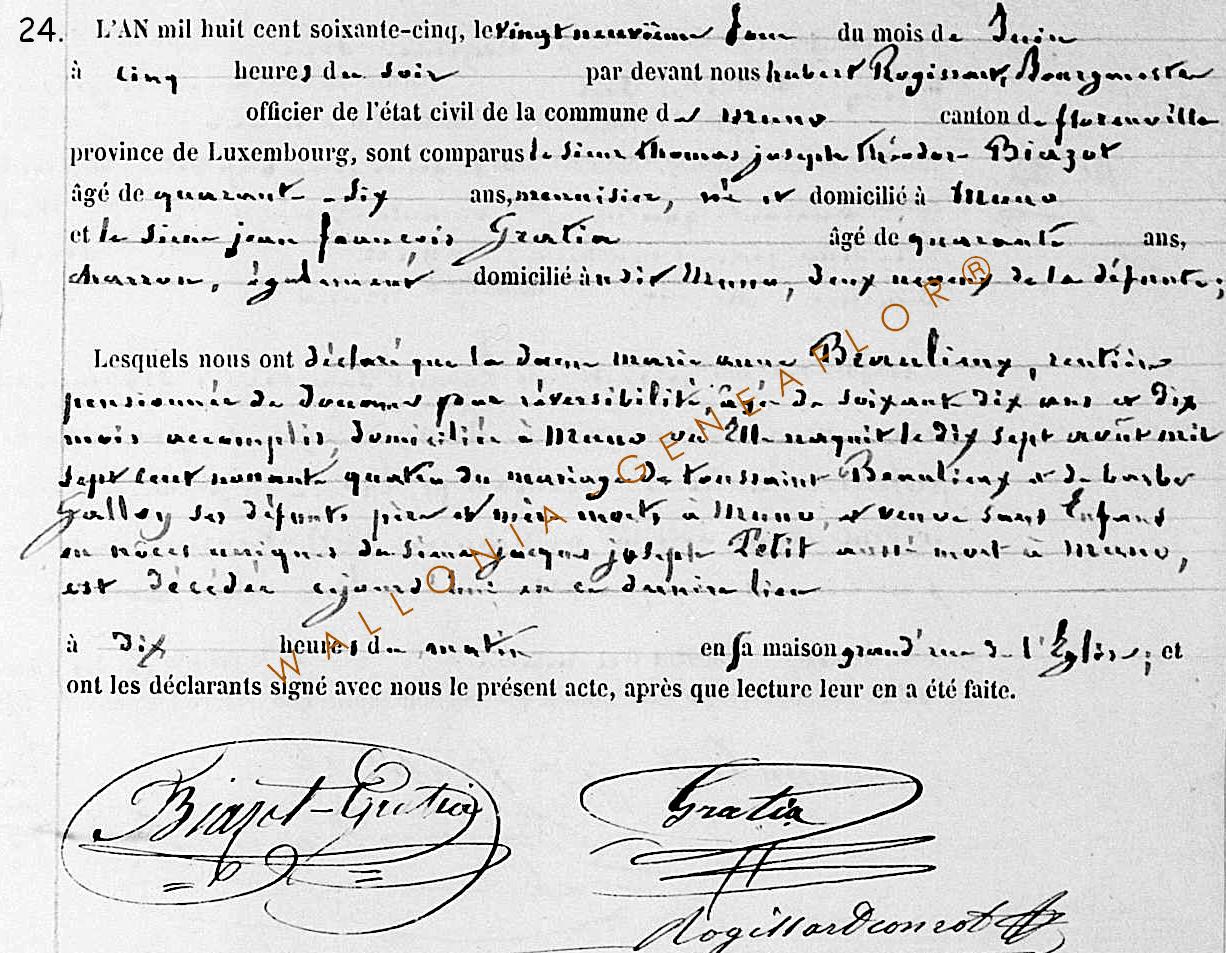 24. L'AN mil huit cent soixante-cinq, le vingt neuvième jour du mois de Juin
à cinq heures du soir par devant nous hubert Rogissart, Bourgmestre
officier de l'état civil de la commune de Muno canton de florenville
province de Luxembourg, sont comparus le sieur thomas joseph théodore Biazot
âgé de quarante-six ans, menuisier, né et domicilié à Muno
et le sieur jean françois Gratia âgé de quarante ans,
charron, également domicilié àudit Muno, deux neveux de la défunte;
Lesquels nous ont déclaré que la dame marie anne Beaulieux, rentière
pensionnée de douanes par réversibilité, âgée de soixante dix ans et dix
mois accomplis, domiciliée à Muno où Elle naquit le dix sept août mil
sept cent nonante quatre du mariage de toussaint Beaulieux et de barbe
Galloy ses défunts père et mère morts à Muno, et veuve sans Enfans
en nôces uniques du sieur jacques joseph Petit aussi mort à Muno,
est décédée cejourd'hui en ce dernier lieu
à dix heures du matin en sa maison grand'rue de l'Eglise; et
ont les déclarants signé avec nous le présent acte, après que lecture leur en a été faite.
Biazot-Gratia Gratia
WALLONIA GENEAFLOR®